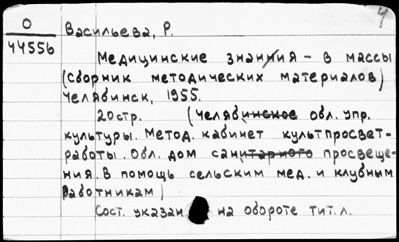 4
О
44556
Васильева, Р.
Медицинские знания - в массы
(Сборник методических материалов)
Челябинск, 1955.
20стр. (Челябинское обл. упр.
культуры. Метод. кабинет культпросвет-
работы. Обл. дом санитарного просвеще-
ния. В помощь сельским мед. и клубным
работникам)
Сост. указан на обороте тит. л.